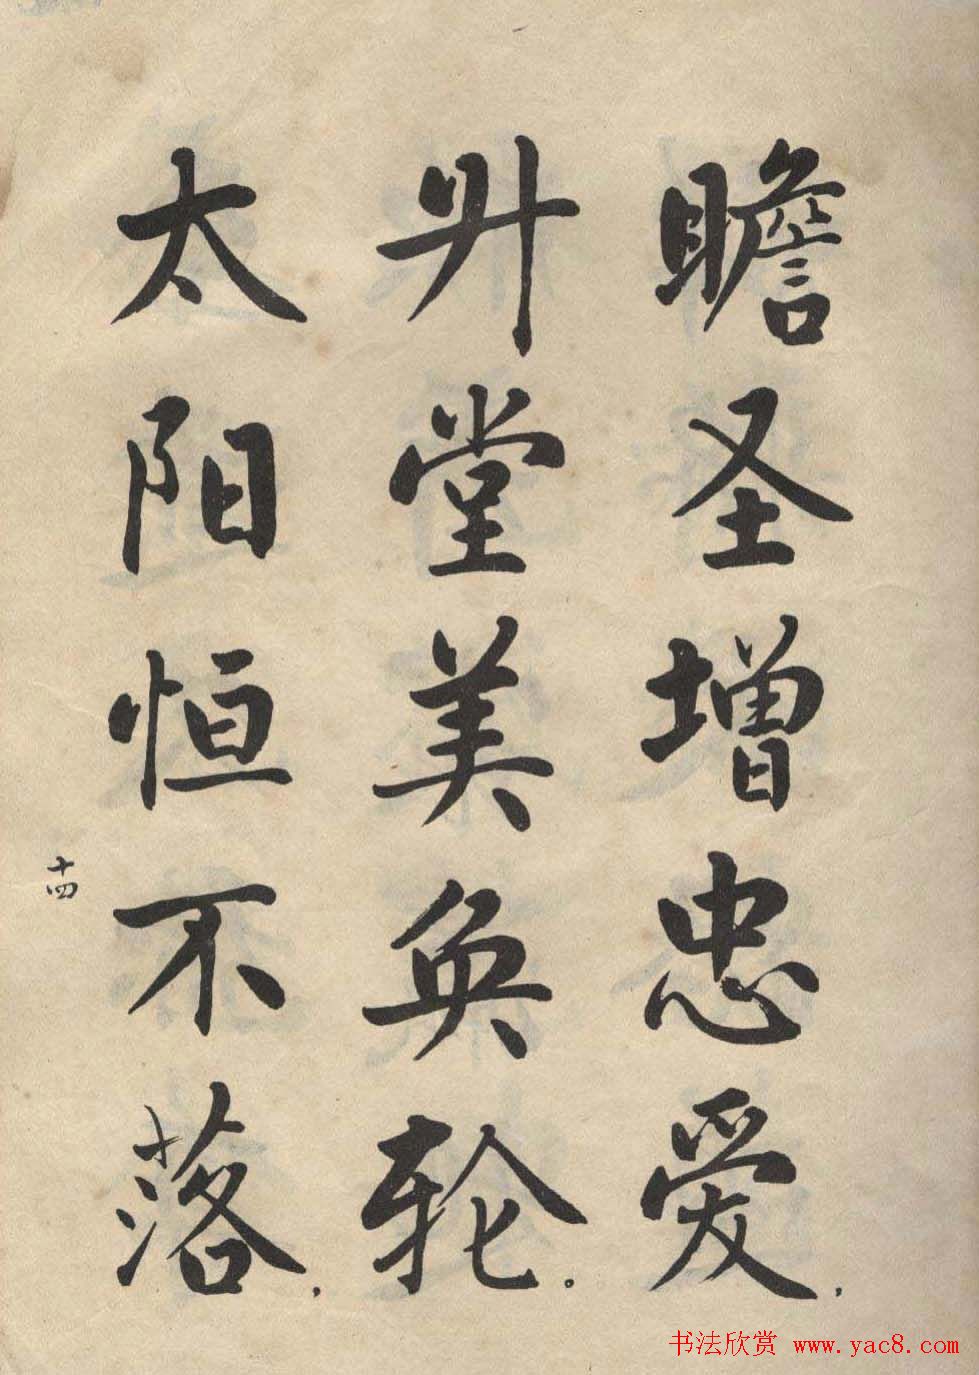 瞻圣增忠爱，
升堂美奂轮。
太阳恒不落，
十四
书法欣赏 www.yac8.com